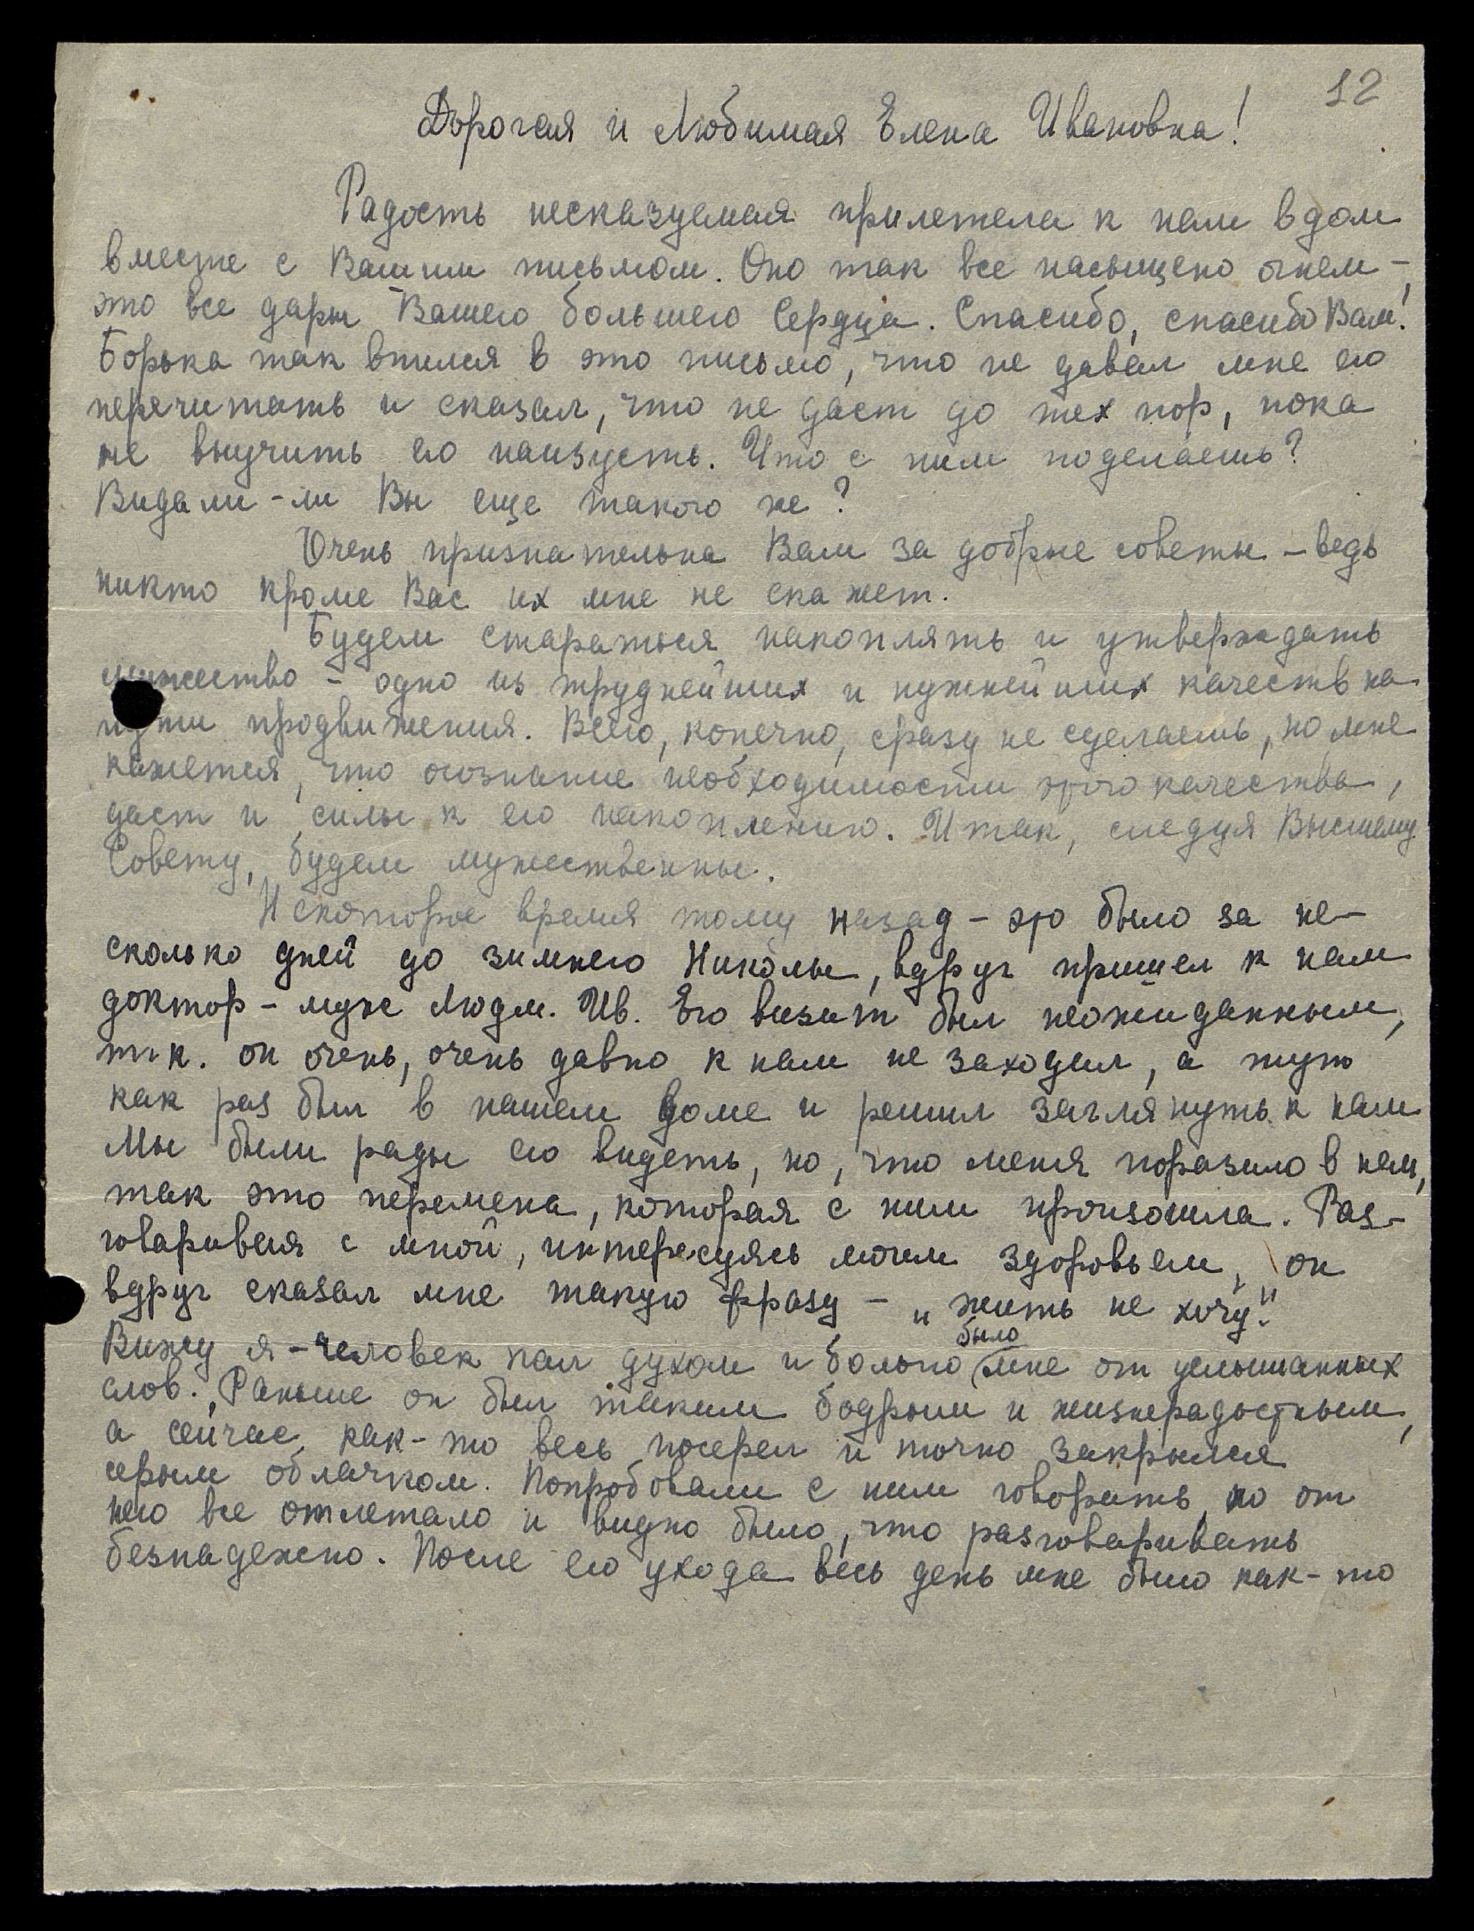 12
Дорогая и Любимая Елена Ивановна!
Радость несказуемая прилетела к нам в дом
вместе с Вашим письмом. Оно так все насыщено огнем –
это все дары Вашего большего Сердца. Спасибо, спасибо Вам!
Борька так впился в это письмо, что не давал мне его
перечитать и сказал, что не даст до тех пор, пока
не выучить его наизусть. Что с ним поделаешь?
Видали-ли Вы еще такого же?
Очень признательна Вам за добрые советы – ведь
никто кроме Вас их мне не скажет.
Будем стараться накоплять и утверждать
мужество – одно из труднейших и нужнейших качеств на
пути продвижения. Всего, конечно, сразу не сделаешь, но мне
кажется, что осознание необходимости этого качества,
даст и силы к его накоплению. Итак, следуя Высшему
Совету, будем мужественны.
Некоторое время тому назад – это было за не-
сколько дней до зимнего Николы, вдруг пришел к нам
доктор – муж Людм. Ив. Его визит был неожиданным,
т.к. он очень, очень давно к нам не заходил, а тут
как раз был в нашем доме и решил заглянуть к нам
Мы были рады его видеть, но, что меня поразило в нем,
так это перемена, которая с ним произошла. Раз-
говаривая с мной, интересуясь моим здоровьем, он
вдруг сказал мне такую фразу – „жить не хочу".
Вижу я – человек пал духом и больно было мне от услышанных
слов. Раньше он был таким бодрым и жизнерадостным,
а сейчас, как-то весь посерел и точно закрылся
серым облачком. Попробовали с ним говорить, но от
него все отлетало и видно было, что разговаривать
безнадежно. После его ухода весь день мне было как-то